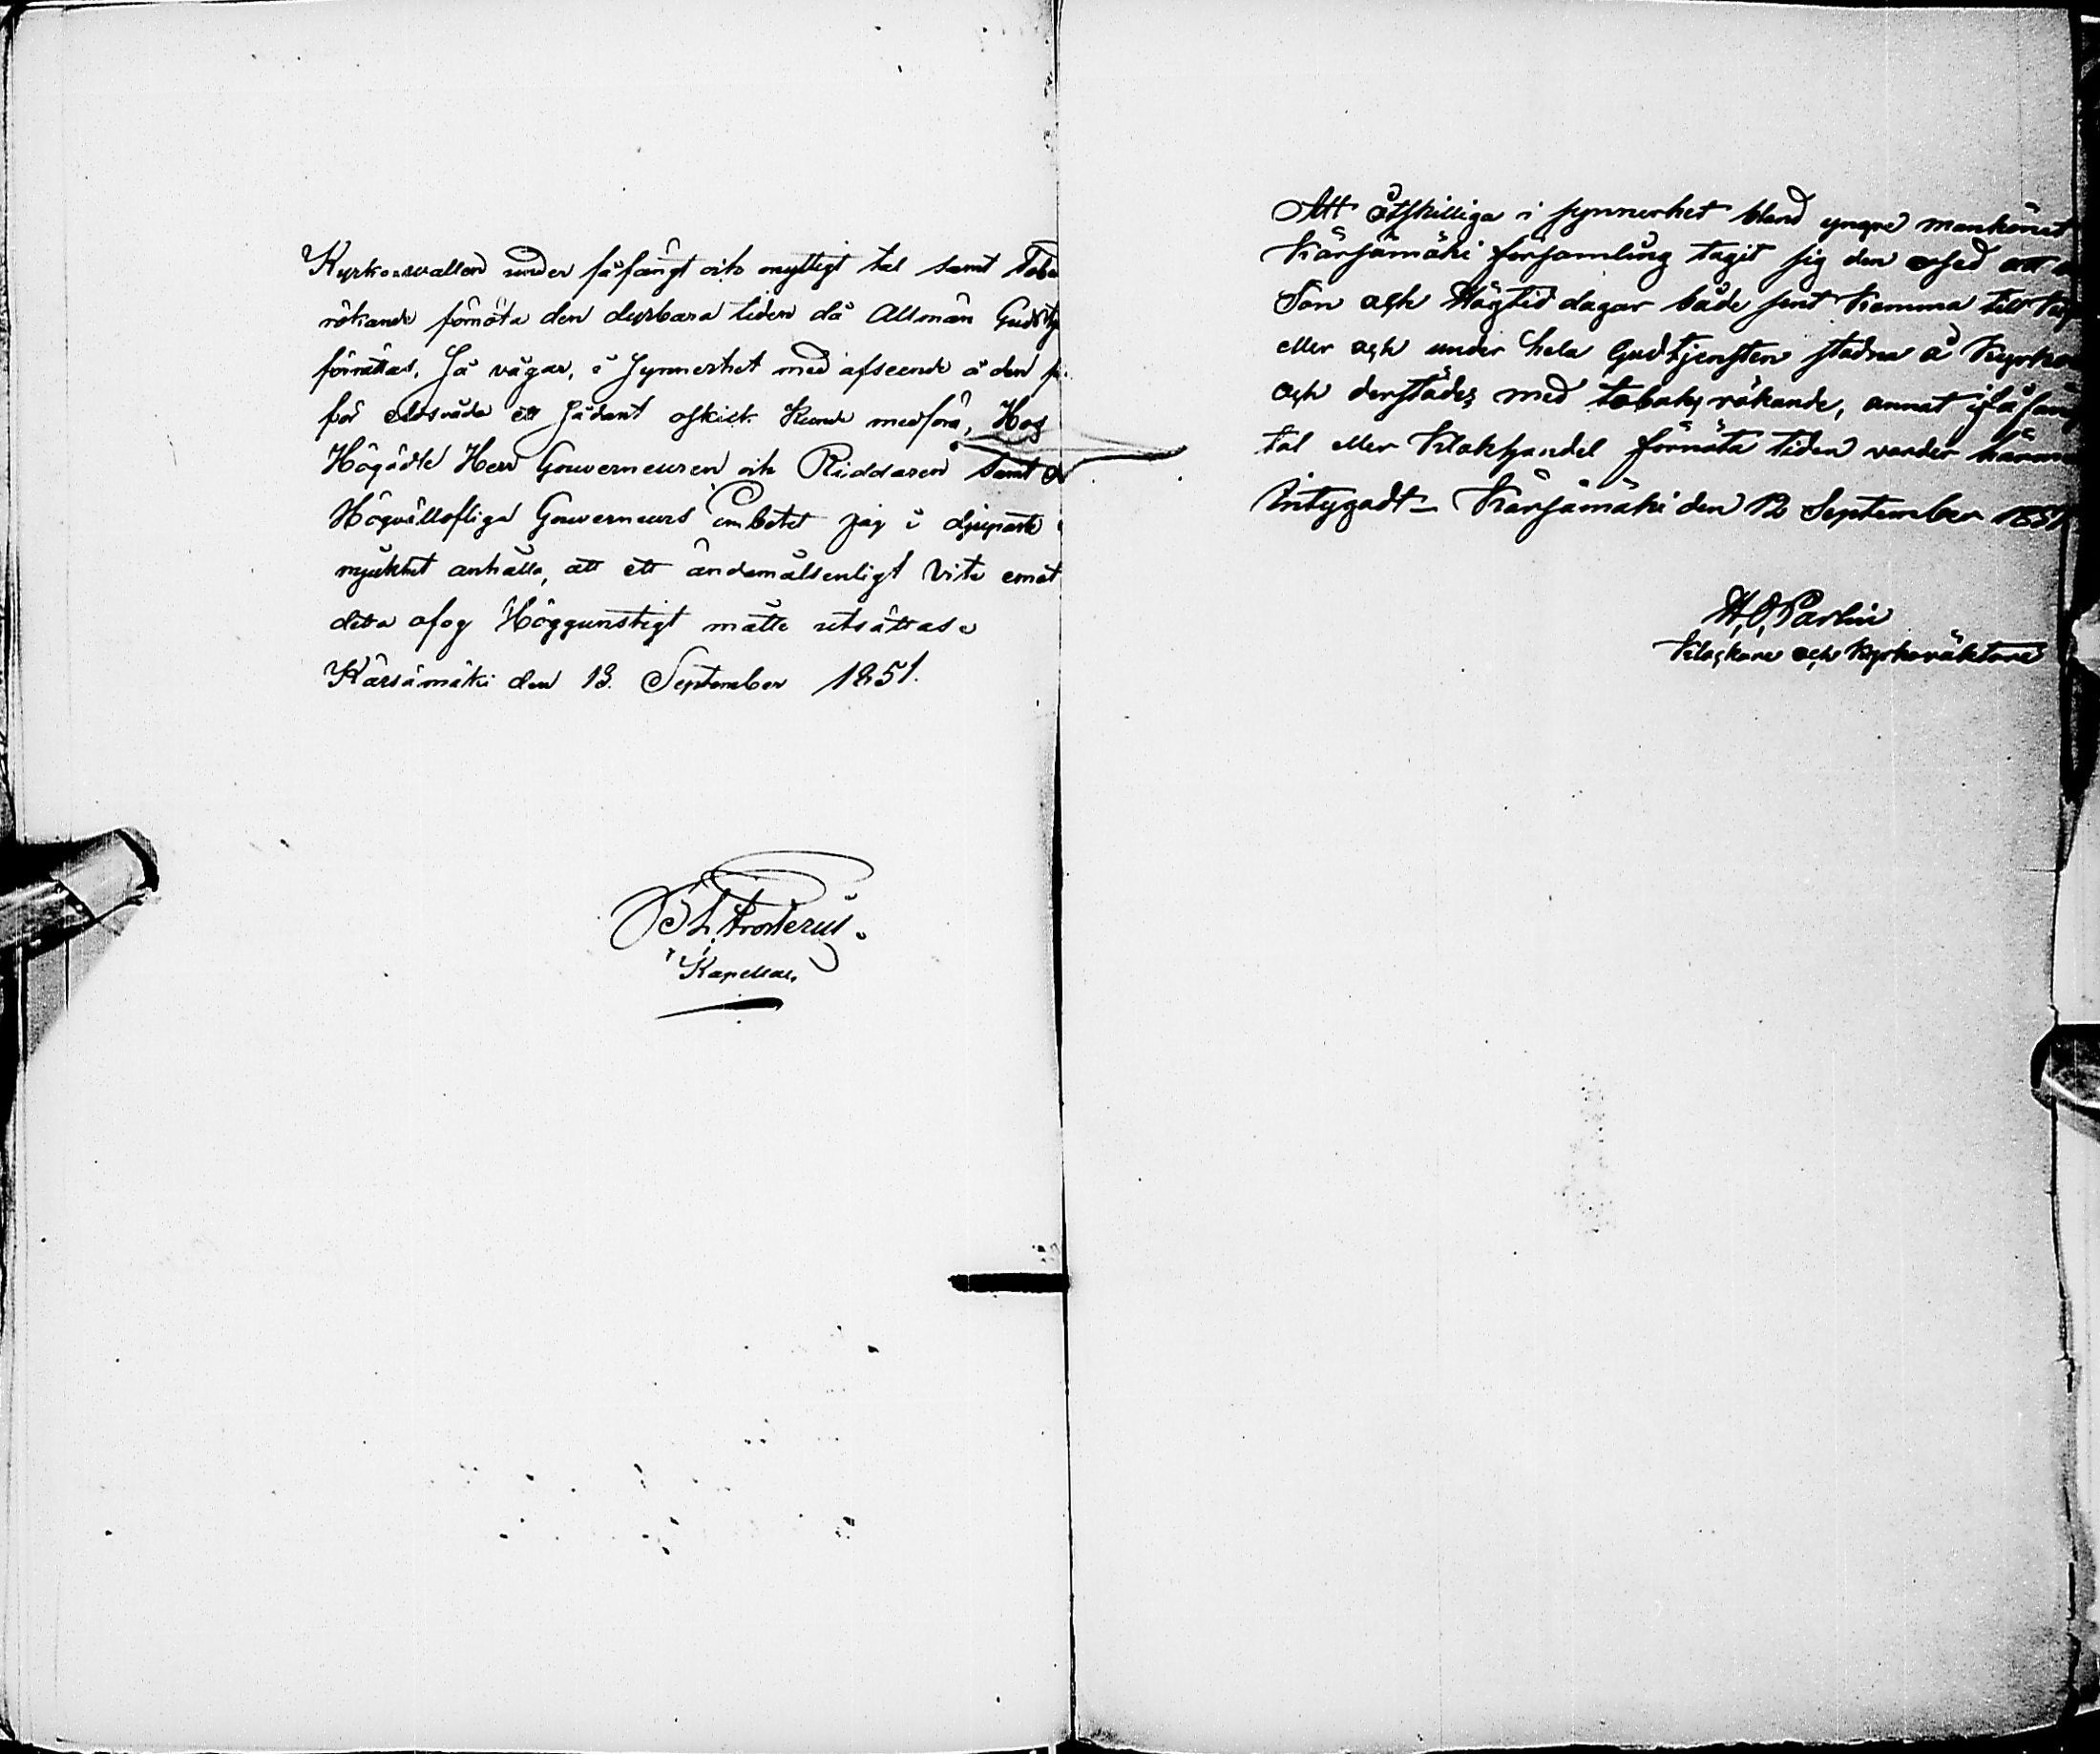 Kyrkowallen under fåfängt och onyttigt tal samt Toba
rökande förnöta den dyrbara tiden då Allmän Gudstj
förrättas. Så vågar, i Synnerhet med afseende å den
för eldsvåda ett sådant oskick kunde medföra, Hos
Högädle Herr Gouverneuren och Riddaren samt
Högvällofliga Gouverneurs Embetet jag i djupaste
mjukhet anhålla, att ett ändamålsenligt Vite emot
detta ofog Höggunstigt måtte utsättas.
Kärsämäki den 13. September 1851.
Kapellan.
Att åtskilliga i synnerhet bland yngre mankönet
Kärsämäki församling tagit sig den osed att
Sön och Högtid dagar både sent komma till
eller och under hela Gudstjensten stadna å Kyrko
och derstädes med tobaks rökande, annat fåfäng
tal eller Klokhandel förnöta tiden varder härme
Intygadt – Kärsämäki den 12 September 1851
H. O. Parlin
Klockare och Kyrkoväktare